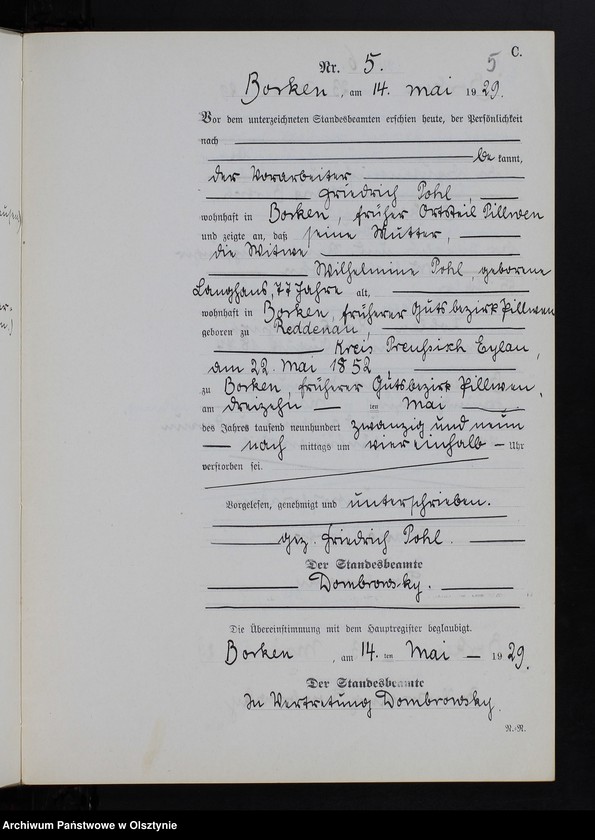 C.
Nr. 5. 5
Borken, am 14. Mai 1929.
Vor dem unterzeichneten Standesbeamten erschien heute, der Persönlichkeit
nach
be kannt,
der Vorarbeiter
Friedrich Pohl,
wohnhaft in Borken, früher Ortsteil Pillwen
und zeigte an, daß seine Mutter,
die Witwe
Wilhelmine Pohl, geborene
Langhans, 77 Jahre alt,
wohnhaft in Borken, früherer Gutsbezirk Pillwen
geboren zu Reddenau,
Kreis Preußisch Eylau,
am 22. Mai 1852
zu Borken, früherer Gutsbezirk Pillwen,
am dreizehn ten Mai
des Jahres tausend neunhundert zwanzig und neun
nach mittags um vier einhalb Uhr
verstorben sei.
Vorgelesen, genehmigt und unterschrieben.
gez. Friedrich Pohl.
Der Standesbeamte
Dombrowsky.
Die Übereinstimmung mit dem Hauptregister beglaubigt.
Borken, am 14. ten Mai 1929.
Der Standesbeamte
In Vertretung Dombrowsky.
R.-R.
Archiwum Państwowe w Olsztynie